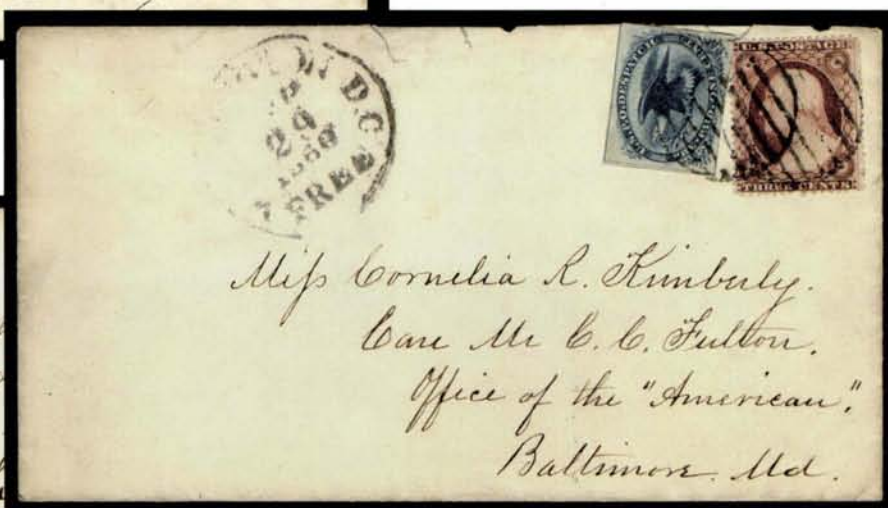 D.C.
29
1860
FREE
U.S.P.O. DESPATCH
U.S. POSTAGE
THREE CENTS
Miss Cornelia R. Kimberly.
Care Mr C. C. Fulton.
Office of the "American".
Baltimore. Md.